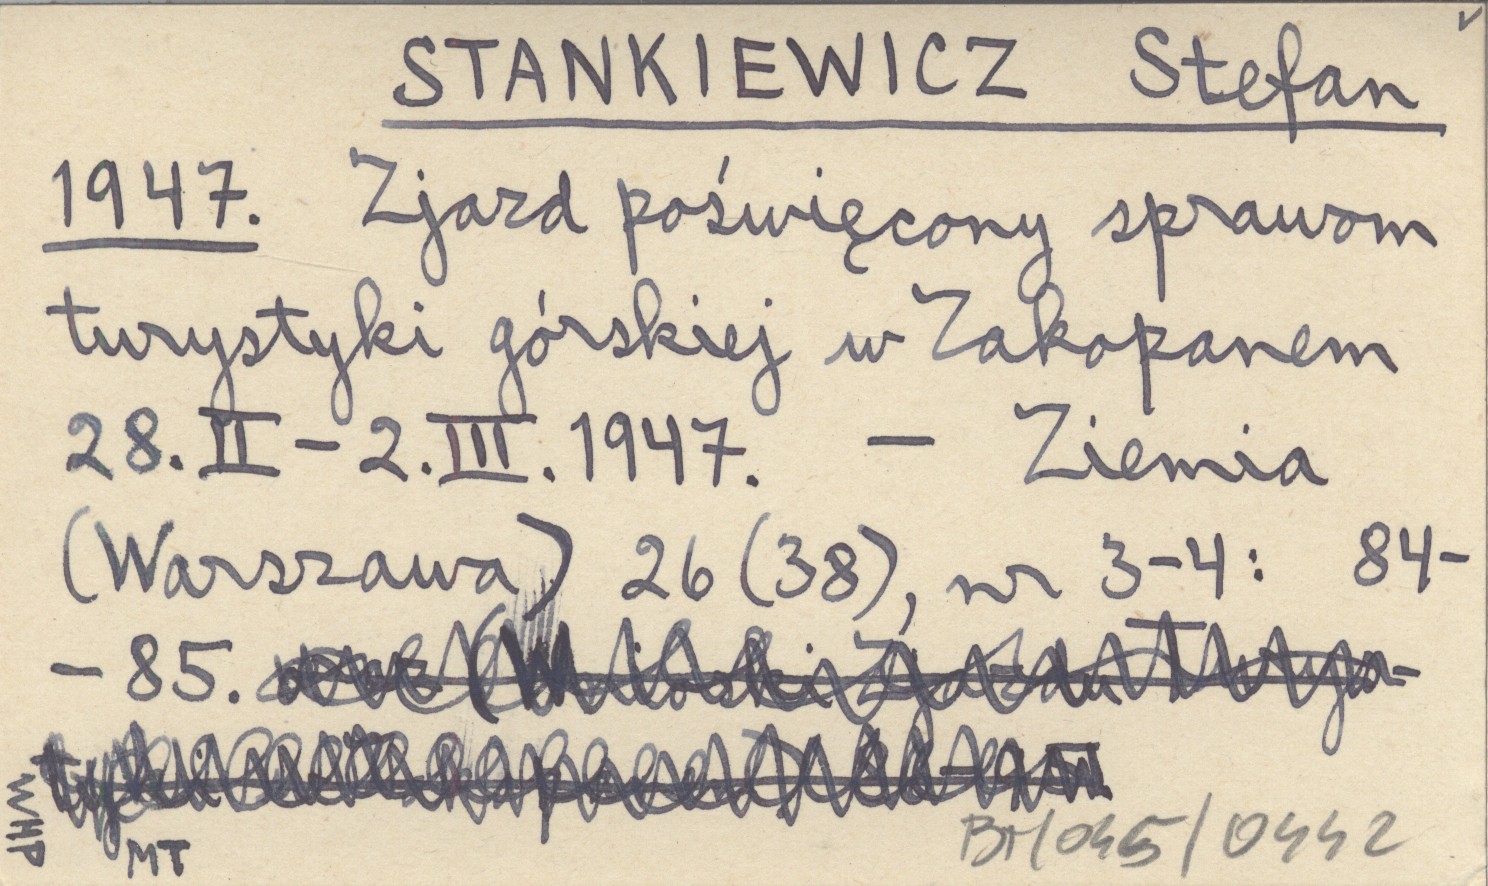 STANKIEWICZ Stefan
1947. Zjazd poświęcony sprawom
turystyki górskiej w Zakopanem
28.II-2.III.1947. - Ziemia
(Warszawa) 26 (38), nr 3-4: 84-
-85.
WHP
MT
BT/045/0442